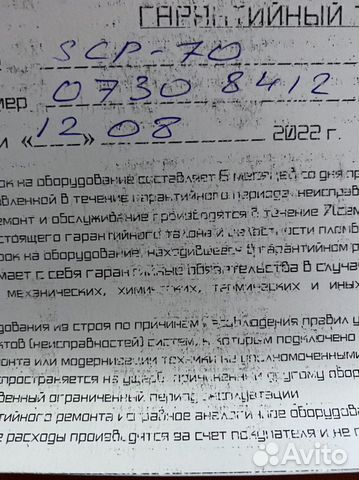 ГАРАНТИЙНЫЙ Т
SCP-70
мер 0730 8412
и «12» 08 2022 г.
ок на оборудование составляет 6 месяцев со дня пр
авленной в течение гарантийного периода неисправ
емонт и обслуживание производятся в течение 7(сем
стоящего гарантийного талона и целостности пломб
рок на оборудование, находившееся в гарантийном р
мает с себя гарантийные обязательства в случа
механических, химических, термических и иных
дования из строя по причинам несоблюдения правил у
ктов (неисправностей) систем, к которым подключено
онта или модернизации техники не уполномоченными
спространяется на ущерб, причиненный другому обор
венный ограниченный период эксплуатации
тийного ремонта и возврат аналогичное оборудова
е расходы производится за счет покупателя и не п
Avito